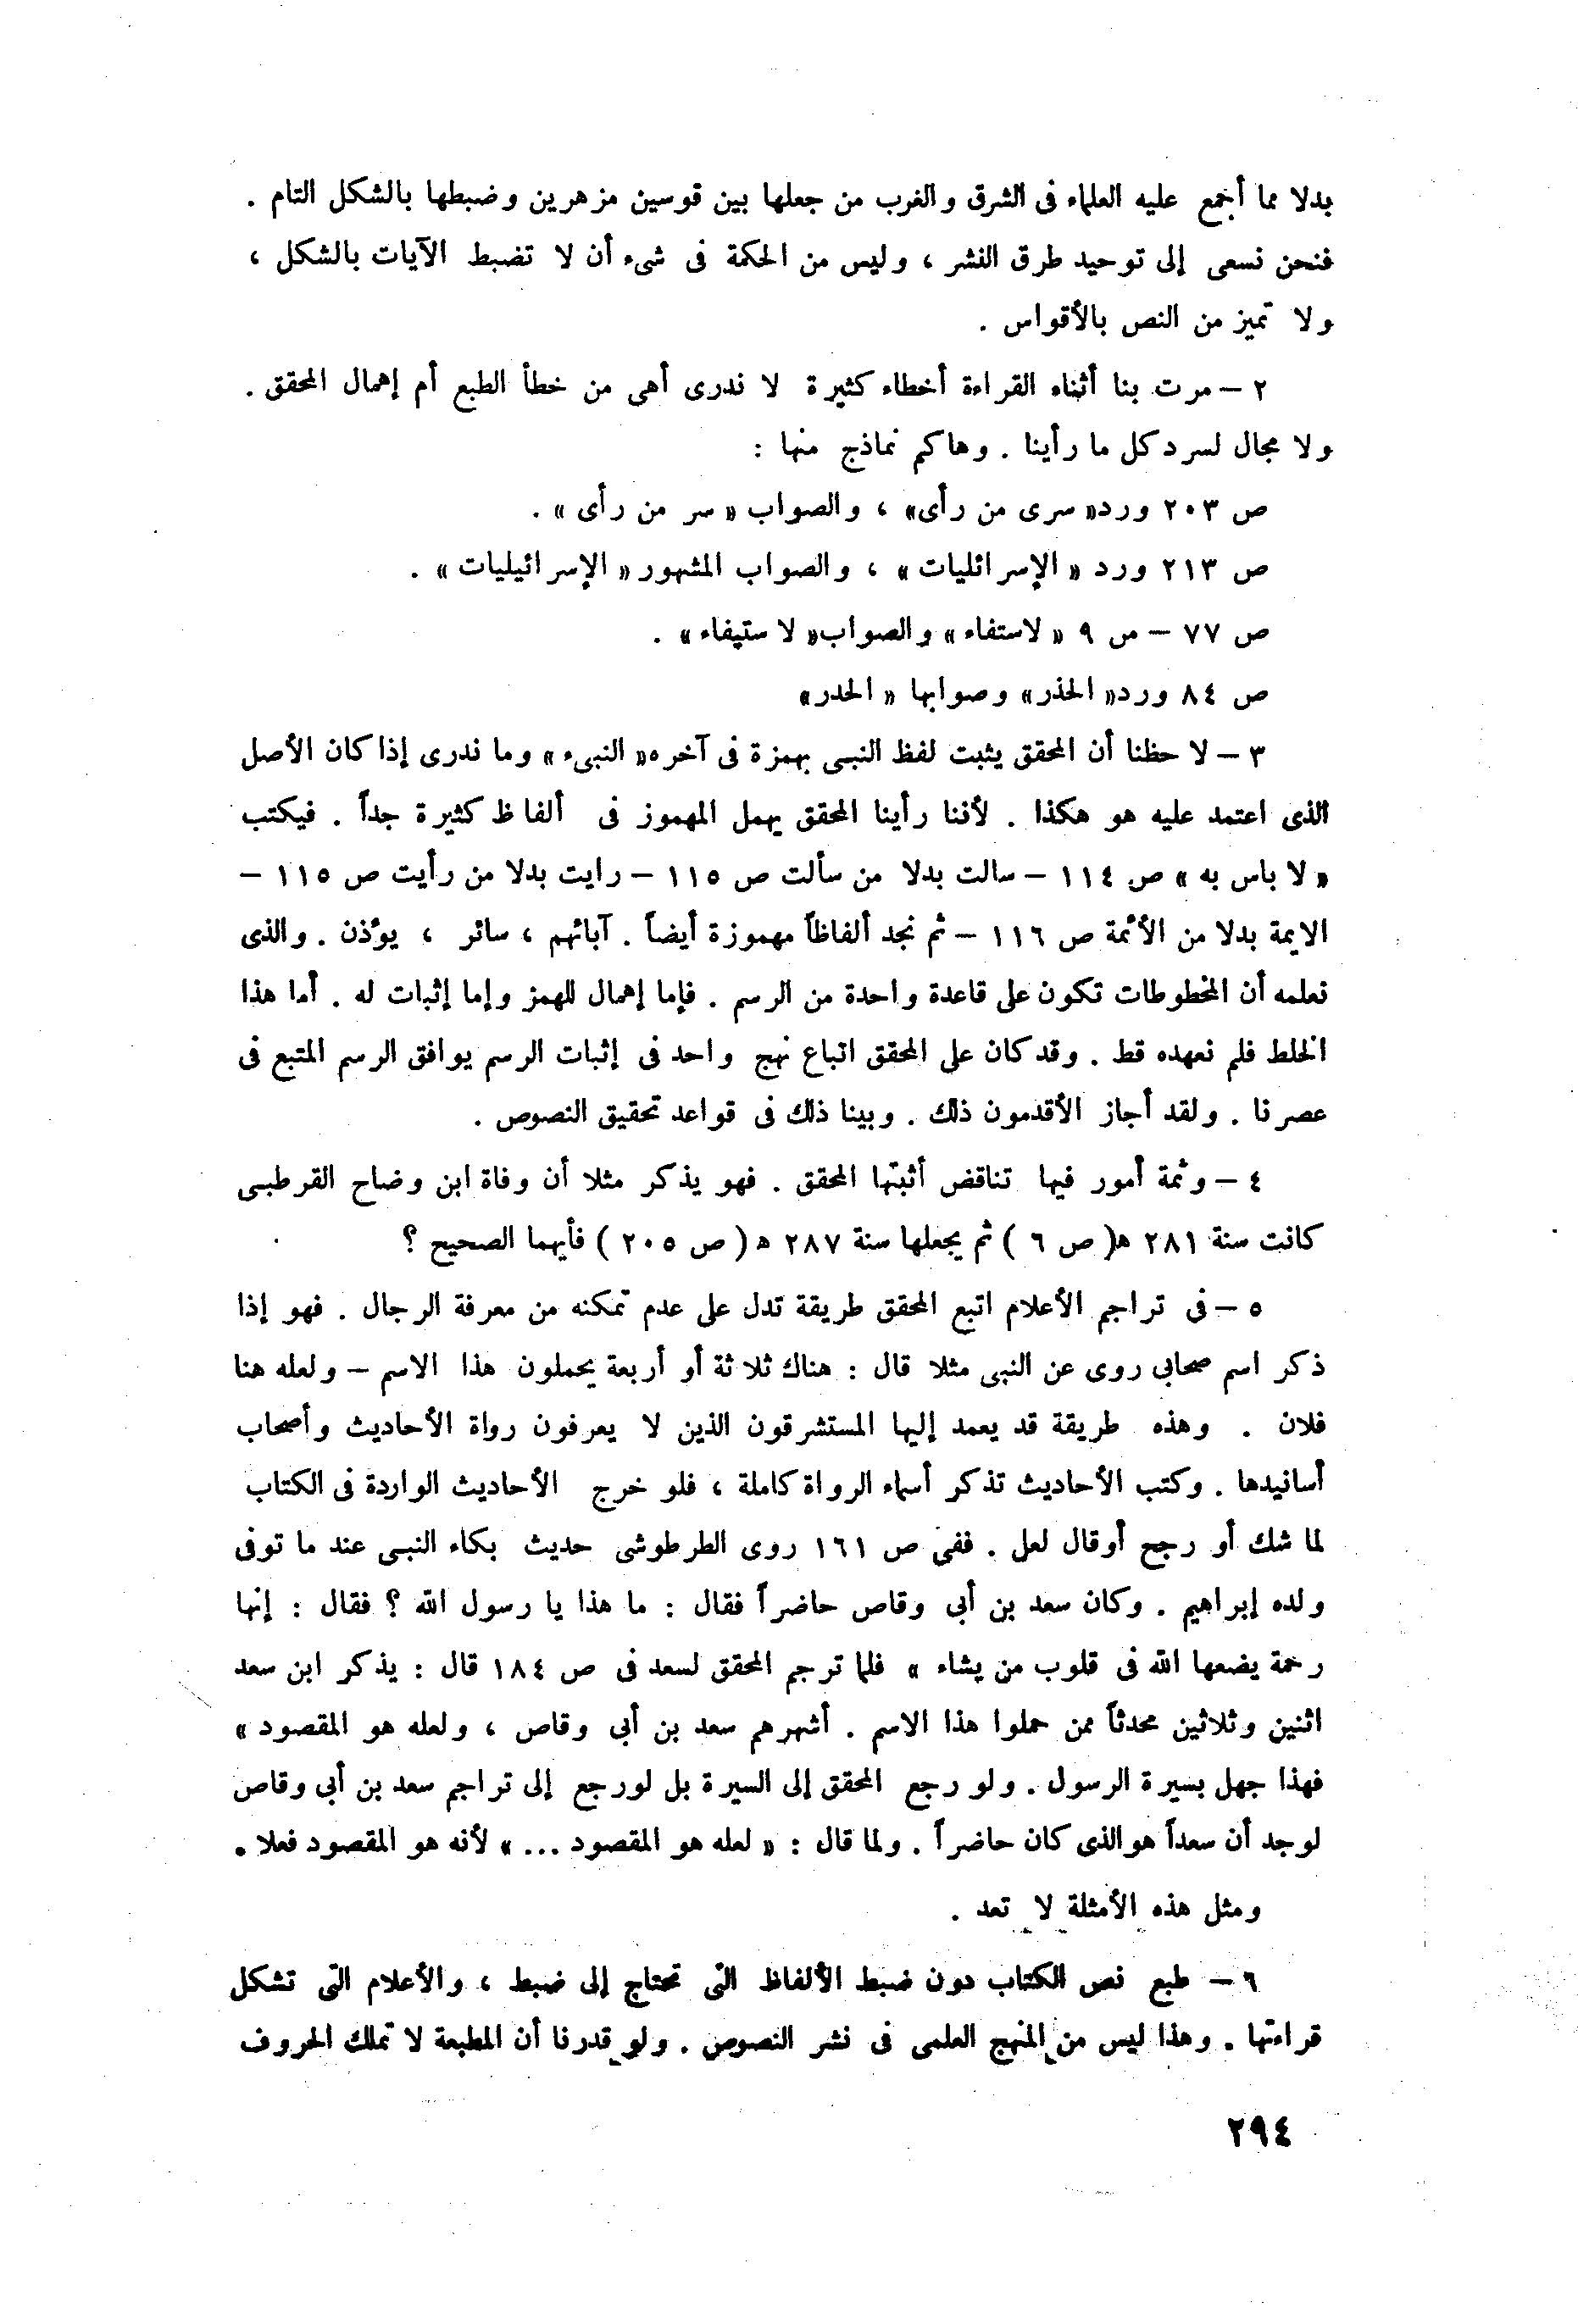 بدلا مما أجمع عليه العلماء فى الشرق والغرب من جعلها بين قوسين مزهرين وضبطها بالشكل التام .
فنحن نسعى إلى توحيد طرق النشر ، وليس من الحكمة فى شىء أن لا تضبط الآيات بالشكل ،
ولا تميز من النص بالأقواس .
٢ – مرت بنا أثناء القراءة أخطاء كثيرة لا ندرى أهى من خطأ الطبع أم إهمال المحقق .
ولا مجال لسرد كل ما رأينا . وهاكم نماذج منها :
ص ٢٠٣ ورد « سرى من رأى » ، والصواب « سر من رأى » .
ص ٢١٣ ورد « الإسرائليات » ، والصواب المشهور « الإسرائيليات » .
ص ٧٧ – س ٩ « لاستفاء » والصواب « لاستيفاء » .
ص ٨٤ ورد « الحذر » وصوابها « الحدر »
٣ – لاحظنا أن المحقق يثبت لفظ النبى بهمزة فى آخره « النبىء » وما ندرى إذا كان الأصل
الذى اعتمد عليه هو هكذا . لأننا رأينا المحقق يهمل المهموز فى ألفاظ كثيرة جداً . فيكتب
« لا باس به » ص ١١٤ – سالت بدلا من سألت ص ١١٥ – رايت بدلا من رأيت ص ١١٥ –
الايمة بدلا من الأئمة ص ١١٦ – ثم نجد ألفاظاً مهموزة أيضاً . آبائهم ، سائر ، يؤذن . والذى
نعلمه أن المخطوطات تكون على قاعدة واحدة من الرسم . فإما إهمال للهمز وإما إثبات له . أما هذا
الخلط فلم نعهده قط . وقد كان على المحقق اتباع نهج واحد فى إثبات الرسم يوافق الرسم المتبع فى
عصرنا . ولقد أجاز الأقدمون ذلك . وبينا ذلك فى قواعد تحقيق النصوص .
٤ – وثمة أمور فيها تناقض أثبتها المحقق . فهو يذكر مثلا أن وفاة ابن وضاح القرطبى
كانت سنة ٢٨١ ه ( ص ٦ ) ثم يجعلها سنة ٢٨٧ ه ( ص ٢٠٥ ) فأيهما الصحيح ؟
٥ – فى تراجم الأعلام اتبع المحقق طريقة تدل على عدم تمكنه من معرفة الرجال . فهو إذا
ذكر اسم صحابى روى عن النبى مثلا قال : هناك ثلاثة أو أربعة يحملون هذا الاسم – ولعله هنا
فلان . وهذه طريقة قد يعمد إليها المستشرقون الذين لا يعرفون رواة الأحاديث وأصحاب
أسانيدها . وكتب الأحاديث تذكر أسماء الرواة كاملة ، فلو خرج الأحاديث الواردة فى الكتاب
لما شك أو رجح أو قال لعل . ففى ص ١٦١ روى الطرطوشى حديث بكاء النبى عند ما توفى
ولده إبراهيم . وكان سعد بن أبى وقاص حاضراً فقال : ما هذا يا رسول الله ؟ فقال : إنها
رحمة يضعها الله فى قلوب من يشاء » فلما ترجم المحقق لسعد فى ص ١٨٤ قال : يذكر ابن سعد
اثنين وثلاثين محدثاً ممن حملوا هذا الاسم . أشهرهم سعد بن أبى وقاص ، ولعله هو المقصود »
فهذا جهل بسيرة الرسول . ولو رجع المحقق إلى السيرة بل لورجع إلى تراجم سعد بن أبى وقاص
لوجد أن سعداً هو الذى كان حاضراً . ولما قال : « لعله هو المقصود ... » لأنه هو المقصود فعلا .
ومثل هذه الأمثلة لا تعد .
٦ – طبع نص الكتاب دون ضبط الألفاظ التى تحتاج إلى ضبط ، والأعلام التى تشكل
قراءتها . وهذا ليس من المنهج العلمى فى نشر النصوص . ولو قدرنا أن المطبعة لا تملك الحروف
٢٩٤